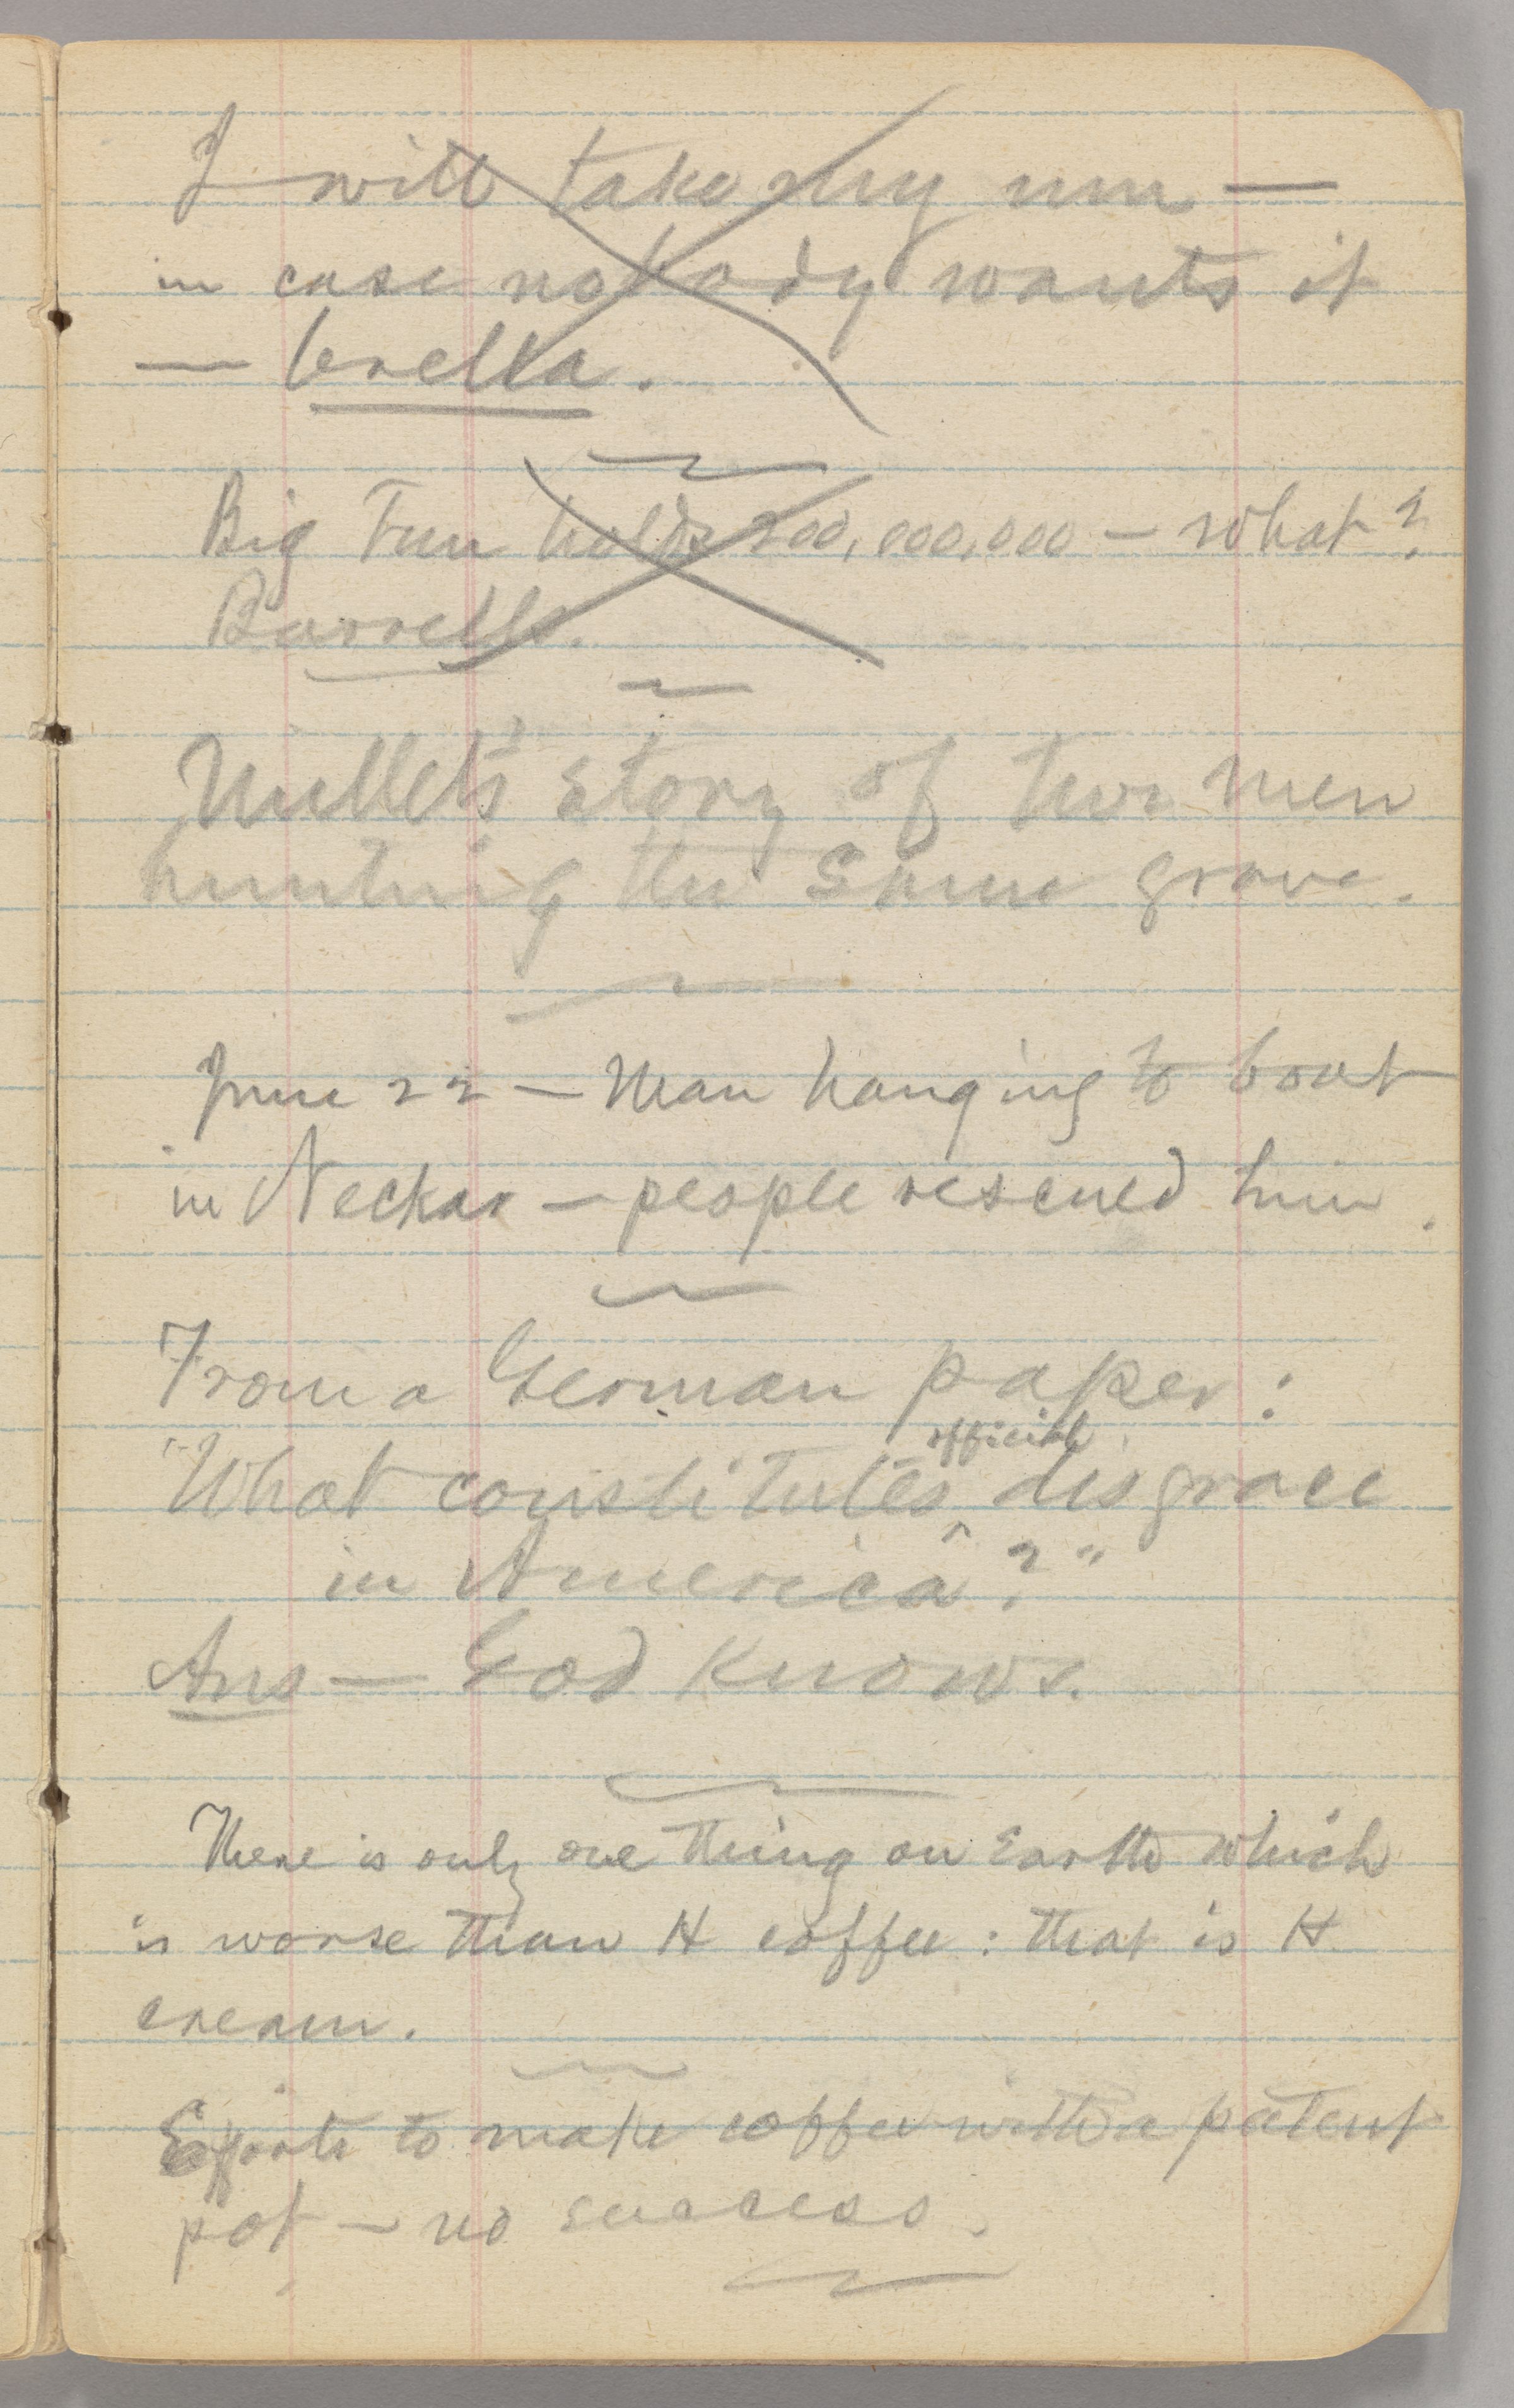 I will take my um —
in case nobody wants it
— brella.
Big Tun holds 200,000,000 — what?
Barrells.
Millet's story of two men
hunting the same grave.
June 22 — Man hanging to boat
in Neckar — people rescued him.
From a German paper:
"What constitutes official disgrace
in America?"
Ans — God knows.
There is only one thing on Earth which
is worse than H coffee: that is H
cream.
Efforts to make coffee with a patent
pot — no success.